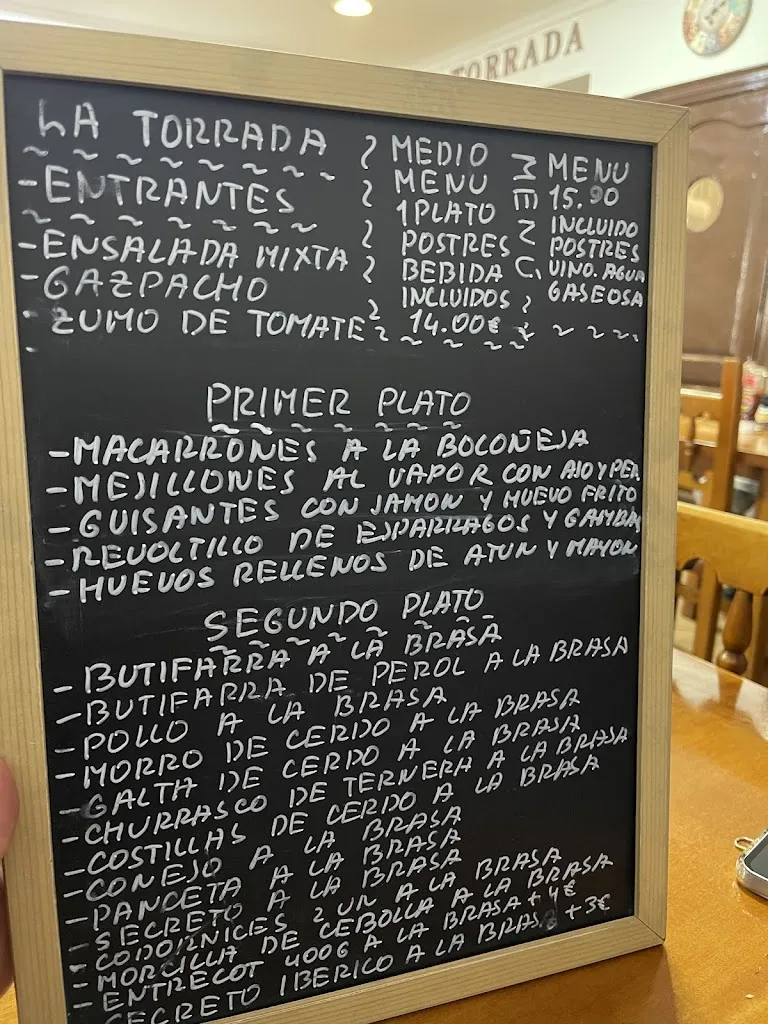 TORRADA
LA TORRADA
-ENTRANTES
-ENSALADA MIXTA
-GAZPACHO
-ZUMO DE TOMATE
MEDIO
MENU
1 PLATO
POSTRES
BEBIDA
INCLUIDOS
14.00€
MENU
MENU
15.90
INCLUIDO
POSTRES
VINO. AGUA
GASEOSA
PRIMER PLATO
-MACARRONES A LA BOLOÑEJA
-MEJILLONES AL VAPOR CON AJO Y PER
-GUISANTES CON JAMON Y HUEVO FRITO
-REVOLTILLO DE ESPARRAGOS Y GAMBAS
-HUEVOS RELLENOS DE ATUN Y MAYON
SEGUNDO PLATO
-BUTIFARRA A LA BRASA
-BUTIFARRA DE PEROL A LA BRASA
-POLLO A LA BRASA
-MORRO DE CERDO A LA BRASA
-GALTA DE CERDO A LA BRASA
-CHURRASCO DE TERNERA A LA BRASA
-COSTILLAS DE CERDO A LA BRASA
-CONEJO A LA BRASA
-PANCETA A LA BRASA
-SECRETO A LA BRASA
-CODORNICES 2 UN A LA BRASA
-MORCILLA DE CEBOLLA A LA BRASA
-ENTRECOT 400G A LA BRASA +4€
SECRETO IBERICO A LA BRASA +3€